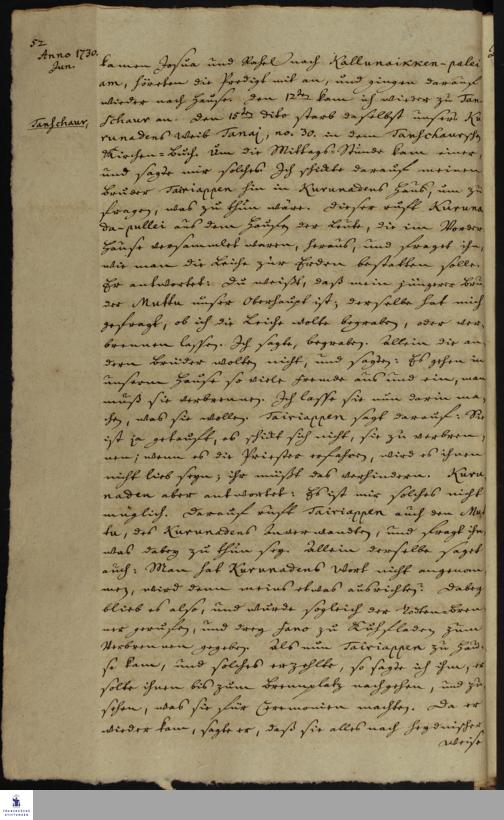 52
Anno 1730.
Jun.
Tanschaur,
kamen Josua und Rahel nach Kallunaikken-palei
am, höreten die Predigt mit an, und gingen darauf
wieder nach Hause. Den 12ten kam ich wieder zu Tan-
schaur an. Den 15ten dito starb daselbst unsers Ku-
runadens Weib Tanaj, no. 30. in dem Tanschaursch
Kirchen-Buch. Um die Mittags-Stunde kam einer,
und sagte mir solches. Ich schickte darauf meinen
Bruder Tairiappen hin in Kurunadens Haus, um zu
fragen, was zu thun wäre. Dieser ruft Kuruna-
da-pullei aus dem Haufen der Leute, die im Vorder-
Hause versammlet waren, heraus, und fraget ihn,
wie man die Leiche zur Erden bestatten solle.
Er antwortet: Du weißt, daß mein jüngerer Bru-
der Muttu unser Oberhaupt ist; derselbe hat mich
gefragt, ob ich die Leiche wolte begraben, oder ver-
brennen lassen. Ich sagte, begraben. Allein die an-
dern Brüder wolten nicht, und sagten: Es gehen in
unserm Hause so viele fremde aus und ein, man
muß sie verbrennen. Ich lasse sie nun darin ma-
chen, was sie wollen. Tairiappen sagt darauf: Sie
ist ja getauft, es schickt sich nicht, sie zu verbren-
nen; wenn es die Priester erfahren, wird es ihnen
nicht lieb seyn; ihr müßt das verhindern. Kuru-
naden aber antwortet: Es ist mir solches nicht
möglich. Darauf ruft Tairiappen auch den Mut-
tu, des Kurunadens Anverwandten, und fragt ihn
was dabey zu thun sey. Allein derselbe saget
auch: Man hat Kurunadens Wort nicht angenom-
men, wird denn meins etwas ausrichten? Dabey
blieb es also, und wurde sogleich der Todten-Bren-
ner gerufen, und drey fano zu Kuhfladen zum
Verbrennen gegeben. Als nun Tairiappen zu Hau-
se kam, und solches erzehlte, so sagte ich ihm, er
solte ihnen bis zum Brennplatz nachgehen, und zu-
sehen, was sie für Ceremonien machten. Da er
wieder kam, sagte er, daß sie alles nach heydnischer
Weise
FRANCKESCHE
STIFTUNGEN